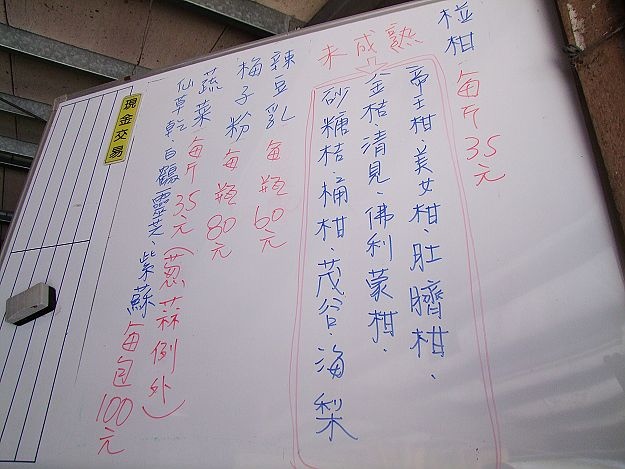 椪柑每斤35元
未成熟
帝王柑、美女柑、肚臍柑、
金桔清見、佛利蒙柑、
砂糖桔、桶柑、茂谷、海梨
辣豆乳每瓶60元
梅子粉每瓶80元
蔬菜每斤35元(蔥蒜例外)
仙草乾、白鶴靈芝、紫蘇每包100元
現金交易